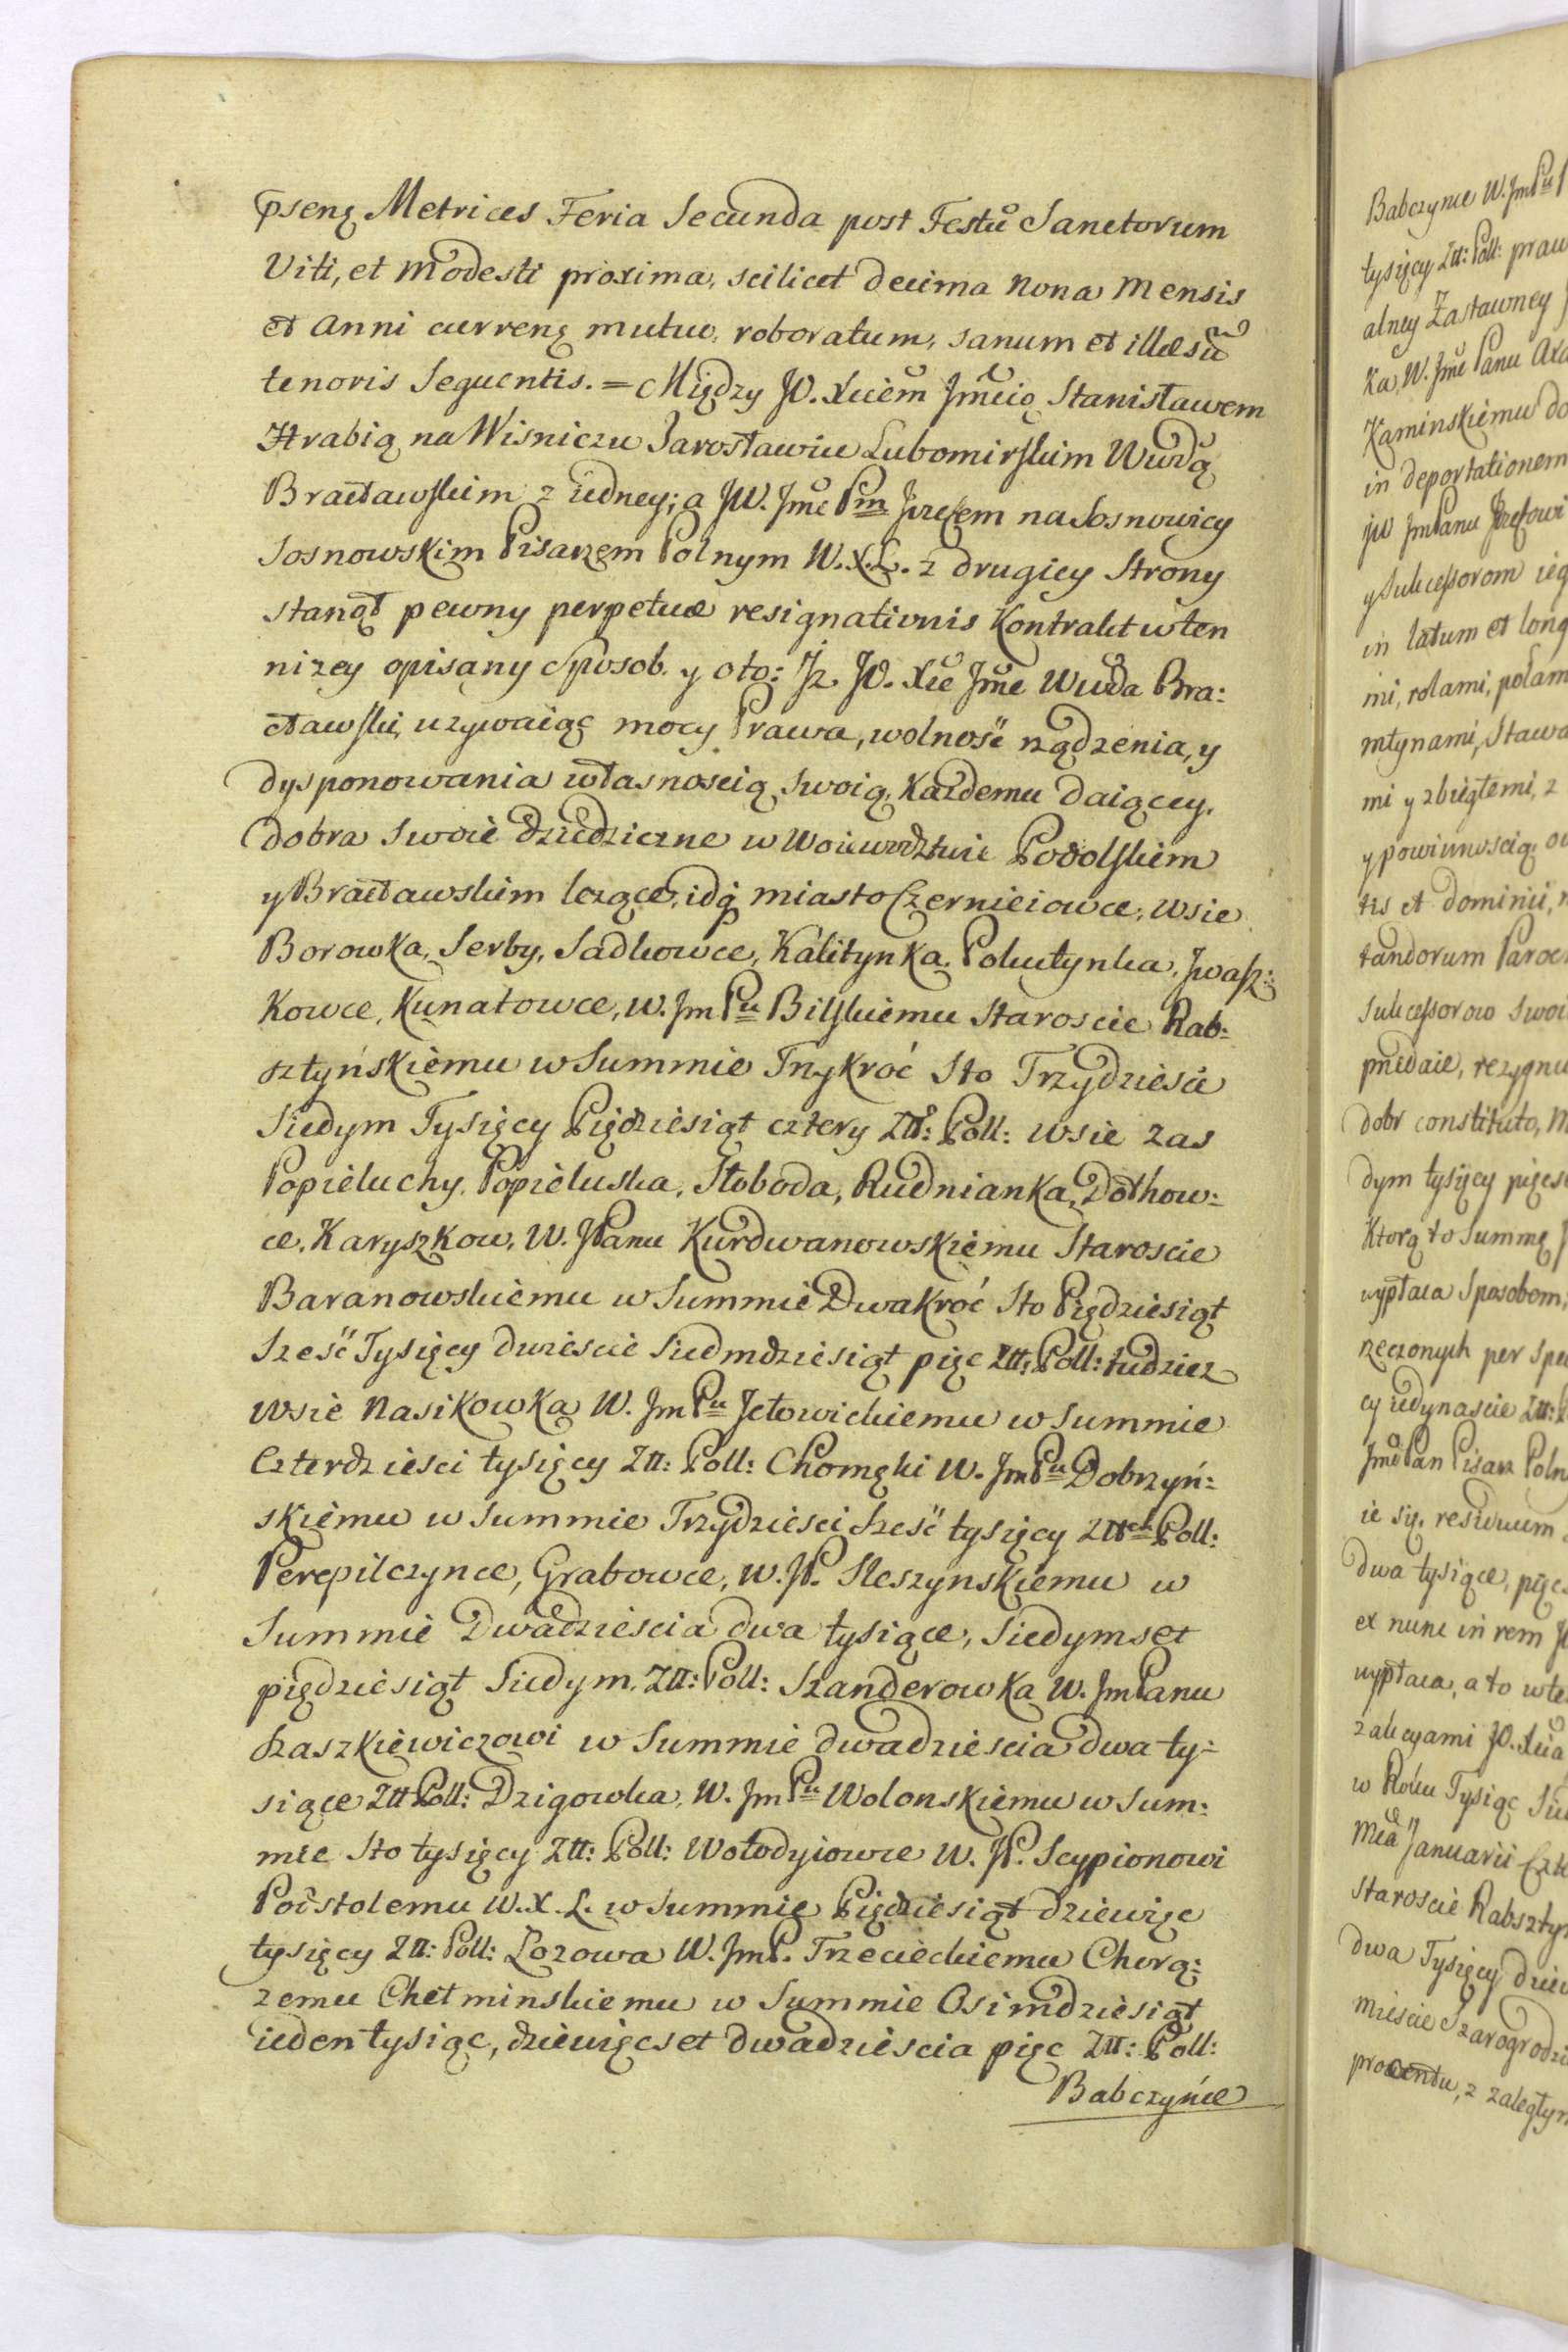 pseng Metrices Feria Secunda post Festū Sanctorum
Viti, et Modesti proxima, scilicet decima nona Mensis
et Anni curreng mutuo, roboratum, sanum et illæsū
tenoris Sequentis. = Między JO. Xciem Jmcią Stanisławem
Hrabią na Wisniczu Jarosławiu Lubomirskim Wwdą
Bracławskim z iedney; a JW. Jmc Pm Jozefem na Sosnowicy
Sosnowskim Pisarzem Polnym W. X. L. z drugiey Strony
stanął pewny perpetuæ resignationis Kontrakt w ten
nizey opisany Sposob. y oto: Jz. JO. Xże Jmc Wwda Bra:
cławski, uzywaiąc mocy Prawa, wolność rządzenia, y
dysponowania własnoscią swoią, Kazdemu daiącey.
dobra Swoie dziedziczne w Woiewodztwie Podolskiem
y Bracławskim lezące, idq miasto Czernieiowce, wsie
Borowka, Serby, Sadkowce, Kalitynka, Polutynka, Jwasz:
Kowce, Kunatowce, W. Jm Pu Bilskiemu Staroscie Rab:
sztyńskiemu w Summie Trzykroć Sto Trzydziescie
Siedym Tysięcy Pięcdziesiąt cztery Złł: Poll: wsie zas
Popieluchy, Popieluska, Słoboda, Rudnianka, Dołhow:
ce, Karyszkow, W. JPanu Kurdwanowskiemu Staroscie
Baranowskiemu w Summie Dwakroć Sto Pięcdziesiąt
Sześć Tysięcy dwiescie Siedmdziesiąt pięc Złł: Poll: tudziez
wsie Nasikowka W. Jm Pu Jełowickiemu w Summie
Czterdziesci tysięcy Złł: Poll: Chomęki W. Jm Pu Dobrzyń:
skiemu w Summie Trzydziesci Sześć tysięcy Złłch Poll:
Perepilczynce, Grabowce, W. JP. Sleszynskiemu w
Summie Dwadziescia dwa tysiące, Siedymset
pięcdziesiąt Siedym, Złł: Poll: Szanderowka W. Jm Panu
Szaszkiewiczowi w Summie dwadziescia dwa ty:
siące Złł Poll: Dzigowka, W. Jm Pu Wolonskiemu w Sum:
mie Sto tysięcy Złł: Poll: Wołodyiowce W. JP. Scypionowi
Podstolemu W. X. L. w Summie Pięcdziesiąt dziewięc
tysięcy Złł: Poll: Łozowa W. JmP. Trzecieckiemu Chorą:
zemu Chełminskiemu w Summie Osimdziesiąt
ieden tysiąc, dziewięcset dwadziescia pięc Złł: Poll:
Babczyńce
Babczynce W. Jm Pu
tysięcy Złł: Poll: praw
alney Zastawney
Ka, W. Jmc Panu
Kaminskiemu do
in deportationem
JW JmPanu Jozefowi
y Sukcessorom ieg
in latum et long
mi, rolami, polam
młynami, Stawa
mi y zbiegłemi, z
y powinnoscią
tis et dominii,
tandorum Paroc
Sukcessorow Swoi
przedaie, rezygnu
dobr constituto, m
dym tysięcy pięcs
Ktorą to Summę
wypłaca Sposobem,
rzeczonych per Spe
cy iedynascie Złł:
Jmc Pan Pisarz Poln
ie się, residuum
dwa tysiące, pięc
ex nunc in rem
wypłaca, a to w te
zakcyami JO. Xcia
w Roku Tysiąc Sie
Mca Januarii Czte
Staroscie Rabsztyn
dwa Tysięcy dziew
miescie Szarogrodzi
procentu, z zaległym